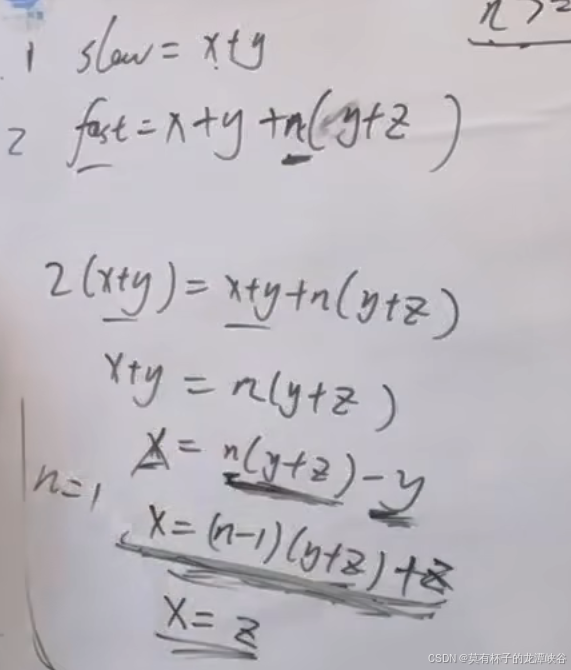 n>2
1 slow = x+y
2 fast = x+y+n(y+z)
2(x+y) = x+y+n(y+z)
x+y = n(y+z)
x = n(y+z)-y
n=1
x = (n-1)(y+z)+z
x = z
CSDN @莫有杯子的龙潭峡谷